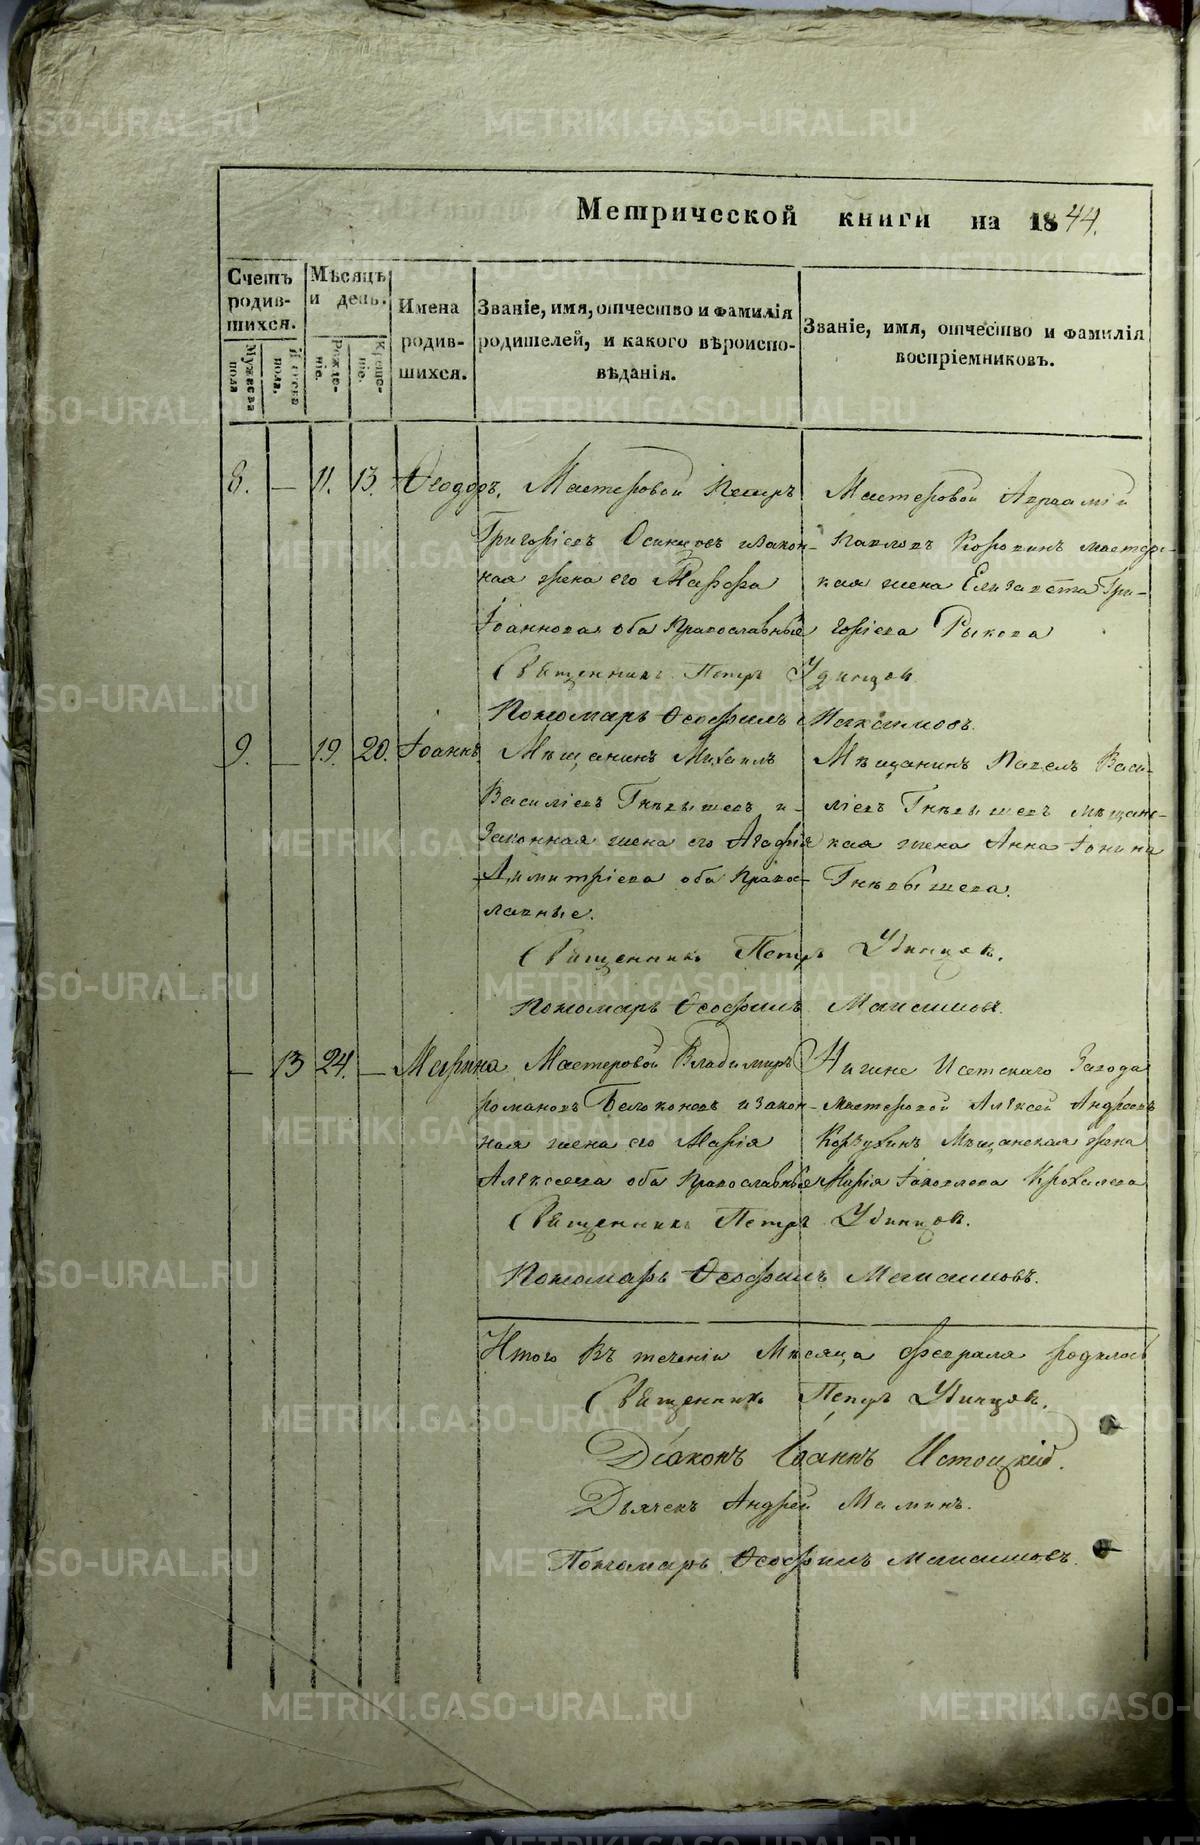 Метрической книги на 1844.
Счетъ родив-шихся.
Мужеска пола
Женска пола.
Мѣсяцъ и день.
Рожде-ніе.
Креще-ніе.
Имена родив-шихся.
Званіе, имя, отчество и фамилія родителей, и какого вѣроиспо-вѣданія.
Званіе, имя, отчество и фамилія воспріемниковъ.
8. — 11. 13. Ѳеодоръ.
Мастеровой Петръ
Григоріевъ Осинцовъ и закон-
ная жена его Марфа
Іоаннова оба Православные
Мастеровой Авраамій
Павловъ Коровинъ мастерс-
кая жена Елизавета Гри-
горіева Рыкова
Священникъ Петръ Удинцов
Пономарь Ѳеофилъ Максимовъ.
9. — 19. 20. Іоаннъ
Мѣщанинъ Михаилъ
Василіевъ Гнѣвышевъ и
Законная жена его Агафія
Димитріева оба Право-
лавные.
Мѣщанинъ Павелъ Васи-
ліевъ Гнѣвышевъ мѣщанс-
кая жена Анна Іонина
Гнѣвышева.
Священникъ Петръ Удинцов.
Пономарь Ѳеофилъ Максимовъ.
— 13 24. — Марина
Мастеровой Владимиръ
Романовъ Белоконевъ и закон-
ная жена его Марія
Алексеева оба Православные
Нижне Исетскаго Завода
мастеровой Алексей Андреевъ
Корзухинъ Мѣщанская жена
Марія Іаковлева Крохалева
Священникъ Петръ Удинцов.
Пономарь Ѳеофилъ Максимовъ.
Итого Въ теченіи Мѣсяца февраля родилось
Священникъ Петръ Удинцов.
Діаконъ Іоаннъ Истоцкій.
Дьячекъ Андрей Маминъ.
Пономарь Ѳеофилъ Максимовъ.
METRIKI.GASO-URAL.RU